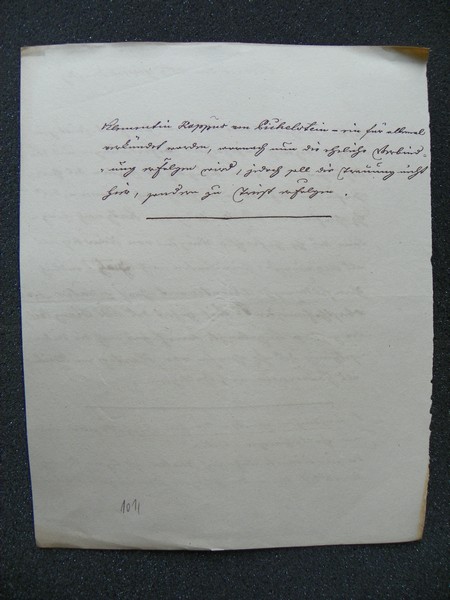 Klementin Rappus von Pichelstein – ein für allemal
verkündet worden, wornach nun die eheliche Verbind-
ung erfolgen wird, jedoch soll die Trauung nicht
hier, sondern zu Triest erfolgen.
101